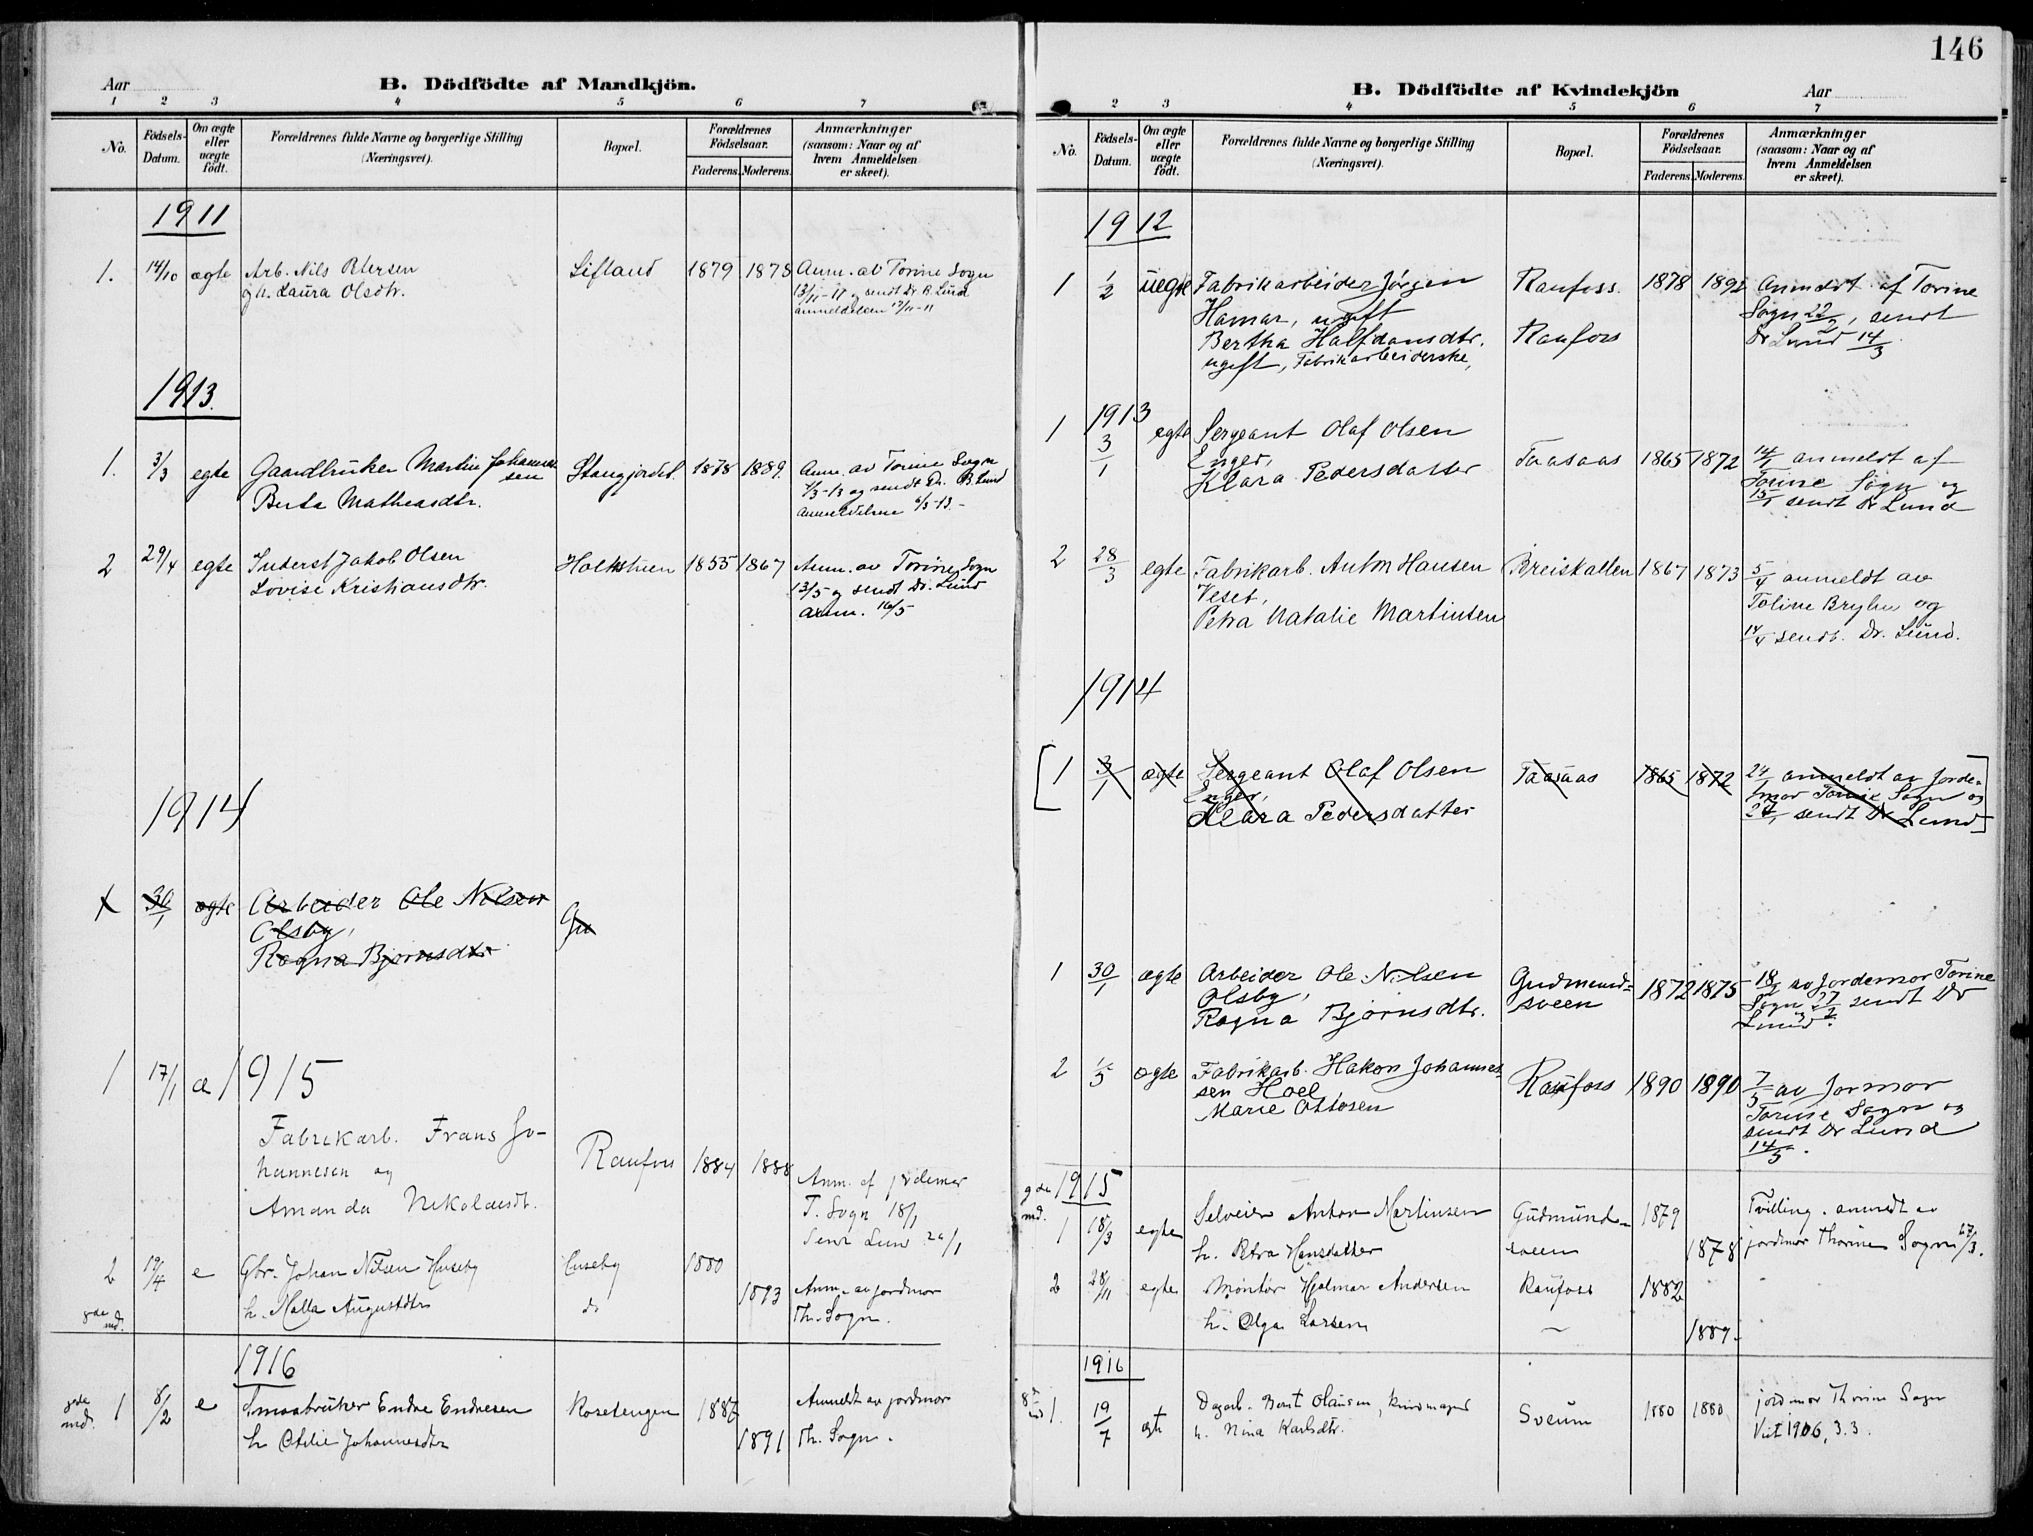 Aar
B. Dödfödte af Mandkjön.
1 2 3 4 5 6 7
No.
Födsels-
Datum.
Om ægte
eller
uægte
födt.
Forældrenes fulde Navne og borgerlige Stilling
(Næringsvei).
Bopæl.
Forældrenes
Födselsaar.
Faderens. Moderens.
Anmærkninger
(saasom: Naar og af
hvem Anmeldelsen
er skeet).
1911
1. 14/10 ægte Arb. Nils Petersen Lifland 1879 1878 Anm. av Torine Sogn
og h. Laura Olsdtr. 13/11-11 og sendt Dr. B. Lund
anmeldelsen 17/11-11
1913.
1. 3/3 egte Gaardbruker Martin Johannes- Stangjordet. 1878 1889. Anm. av Torine Sogn
sen 4/3-13 og sendt Dr. B. Lund
Berta Matheasdtr. anmeldelsen 6/3-13.-
2 29/4 egte Inderst Jakob Olsen 1855 1867 Anm. av Torine Sogn
Lovise Kristiansdtr. 13/5 og sendt Dr. Lund
anm. 16/5
1914
1 30/1 ægte Arbeider Ole Nilsen
Olsby, Gu
Ragna Bjørnsdtr
1 17/1 æ 1915
Fabrikarb. Frans Jo-
hannesen og Raufoss 1884 1888
Amanda Nikolaisdt. Anm. af jordemor
T. Sogn 18/1
Sent Lund 20/1
2 19/4 e Gbr. Johan Nilsen Huseby Huseby 1880
h. Malla Augustdtr do 1893 Anm. av jordmor
8de md. Th. Sogn.
1916
9de md. 1 8/2 e Smaabruker Endre Endresen Rosetengen 1887 Anmeldt av jordmor
h. Otilie Johannesdtr 1891 Th. Sogn.
146
B. Dödfödte af Kvindekjön
Aar
2 3 4 5 6 7
No.
Födsels-
Datum.
Om ægte
eller
uægte
födt.
Forældrenes fulde Navne og borgerlige Stilling
(Næringsvei).
Bopæl.
Forældrenes
Födselsaar.
Faderens. Moderens.
Anmærkninger
(saasom: Naar og af
hvem Anmeldelsen
er skeet).
1912
1 1/2 uegte Fabrikarbeider Jørgen Raufoss. 1878 1892 Anmeldt af Torine
Hamar, ugift Sogn 22/2, sendt
Bertha Halfdansdtr. Raufoss Dr Lund 14/3
ugift, Fabrikarbeiderske,
1913
1 3/1 egte Sergeant Olaf Olsen
Enger, Taasaas 1865 1872 14/1 anmeldt af
Klara Pedersdatter Torine Sogn og
15/1 sendt Dr Lund
2 28/3 egte Fabrikarb. Anton Hansen Breiskallen 1867 1873 5/4 anmeldt av
Veset, Toline Bryhn og
Petra Natalie Martinsen 14/4 sendt. Dr. Lund.
1914
[1 3/1 ægte Sergeant Olaf Olsen Taasaas 1865 1872 24/1 anmeldt av Jorde-
Enger, mor Torine Sogn og
Klara Pedersdatter 27/1 sendt Dr Lund]
1 30/1 ægte Arbeider Ole Nilsen Gudmund- 1872 1875 18/2 av Jordemor Torine
Olsby, sveen Sogn 27/2 sendt Dr
Ragna Bjørnsdtr. Lund.
2 1/5 ægte Fabrikarb. Hakon Johannes- Raufoss 1890 1890 7/5 av Jormor
sen Hoel Torine Sogn og
Marie Ottosen sendt Dr Lund
14/5.
9de md. 1915
1 18/3 egte Selveier Anton Martinsen Gudmund- 1879 Tvilling. anmeldt av
h. Petra Hansdatter sveen 1878 jordmor Thorine Sogn 27/3.
2 28/11 egte Montør Hjalmar Andersen Raufoss 1882
h. Olga Larsen — 1889.
1916
1. 19/7 egt Dagarb. Bernt Olaussen, Sveum 1880 1880 jordmor Thorine Sogn
h. Nina Karlsdtr. 1906, 3.3.